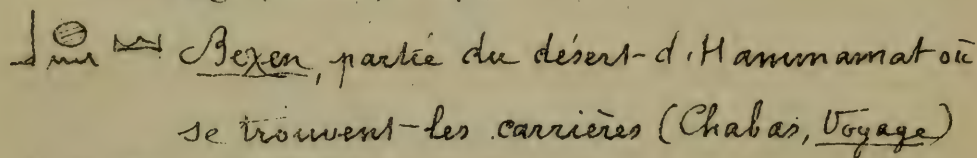 𓃀𓐍𓈖𓈊 Bexen, partie du désert d'Hammamat où
se trouvent les carrières (Chabas, Voyage)